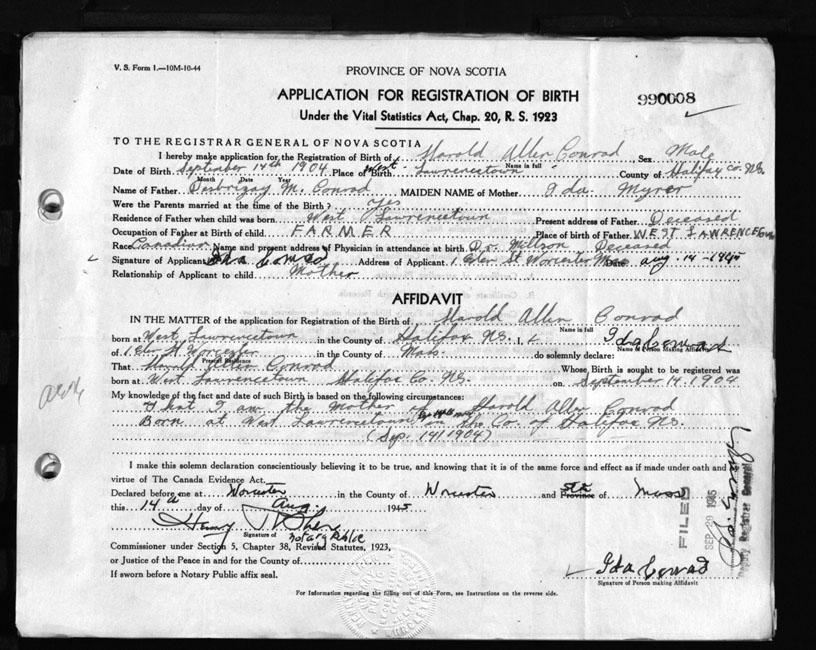 V. S. Form 1.—10M-10-44
PROVINCE OF NOVA SCOTIA
990608
APPLICATION FOR REGISTRATION OF BIRTH
Under the Vital Statistics Act, Chap. 20, R. S. 1923
TO THE REGISTRAR GENERAL OF NOVA SCOTIA
I hereby make application for the Registration of Birth of Harold Allen Conrad Sex Male
Name in full
Date of Birth September 14th 1904 Place of Birth West Lawrencetown County of Halifax Co. N.S.
Month Date Year
Name of Father M. Conrad MAIDEN NAME of Mother Ida Myrer
Were the Parents married at the time of the Birth? Yes
Residence of Father when child was born West Lawrencetown Present address of Father Deceased
Occupation of Father at Birth of child FARMER Place of birth of Father WEST LAWRENCETown
Race Canadian Name and present address of Physician in attendance at birth Dr. Millson Deceased
Signature of Applicant Ida Conrad Address of Applicant 1 St Worcester Mass Date Aug. 14 - 1945
Relationship of Applicant to child Mother
AFFIDAVIT
IN THE MATTER of the application for Registration of the Birth of Harold Allen Conrad
Name in full
born at West Lawrencetown in the County of Halifax N.S. I, Ida Conrad
Name of Person Making Affidavit
of 1 St Worcester in the County of Mass. do solemnly declare:
Present Residence
That Harold Allen Conrad Whose Birth is sought to be registered was
born at West Lawrencetown Halifax Co. N.S. on September 14. 1904
My knowledge of the fact and date of such Birth is based on the following circumstances:
That I am the Mother of Harold Allen Conrad
Born at West Lawrencetown in the Co. of Halifax N.S.
(Sep. 14/1904)
I make this solemn declaration conscientiously believing it to be true, and knowing that it is of the same force and effect as if made under oath and by
virtue of The Canada Evidence Act.
Declared before me at Worcester in the County of Worcester and Province State of Mass
this 14 day of Aug. 1945
Henry
Signature of
Notary Public
Commissioner under Section 5, Chapter 38, Revised Statutes, 1923,
or Justice of the Peace in and for the County of
If sworn before a Notary Public affix seal.
Ida Conrad
Signature of Person making Affidavit
For Information regarding the filling out of this Form, see Instructions on the reverse side.
FILED
SEP 29 1945
Deputy Registrar General